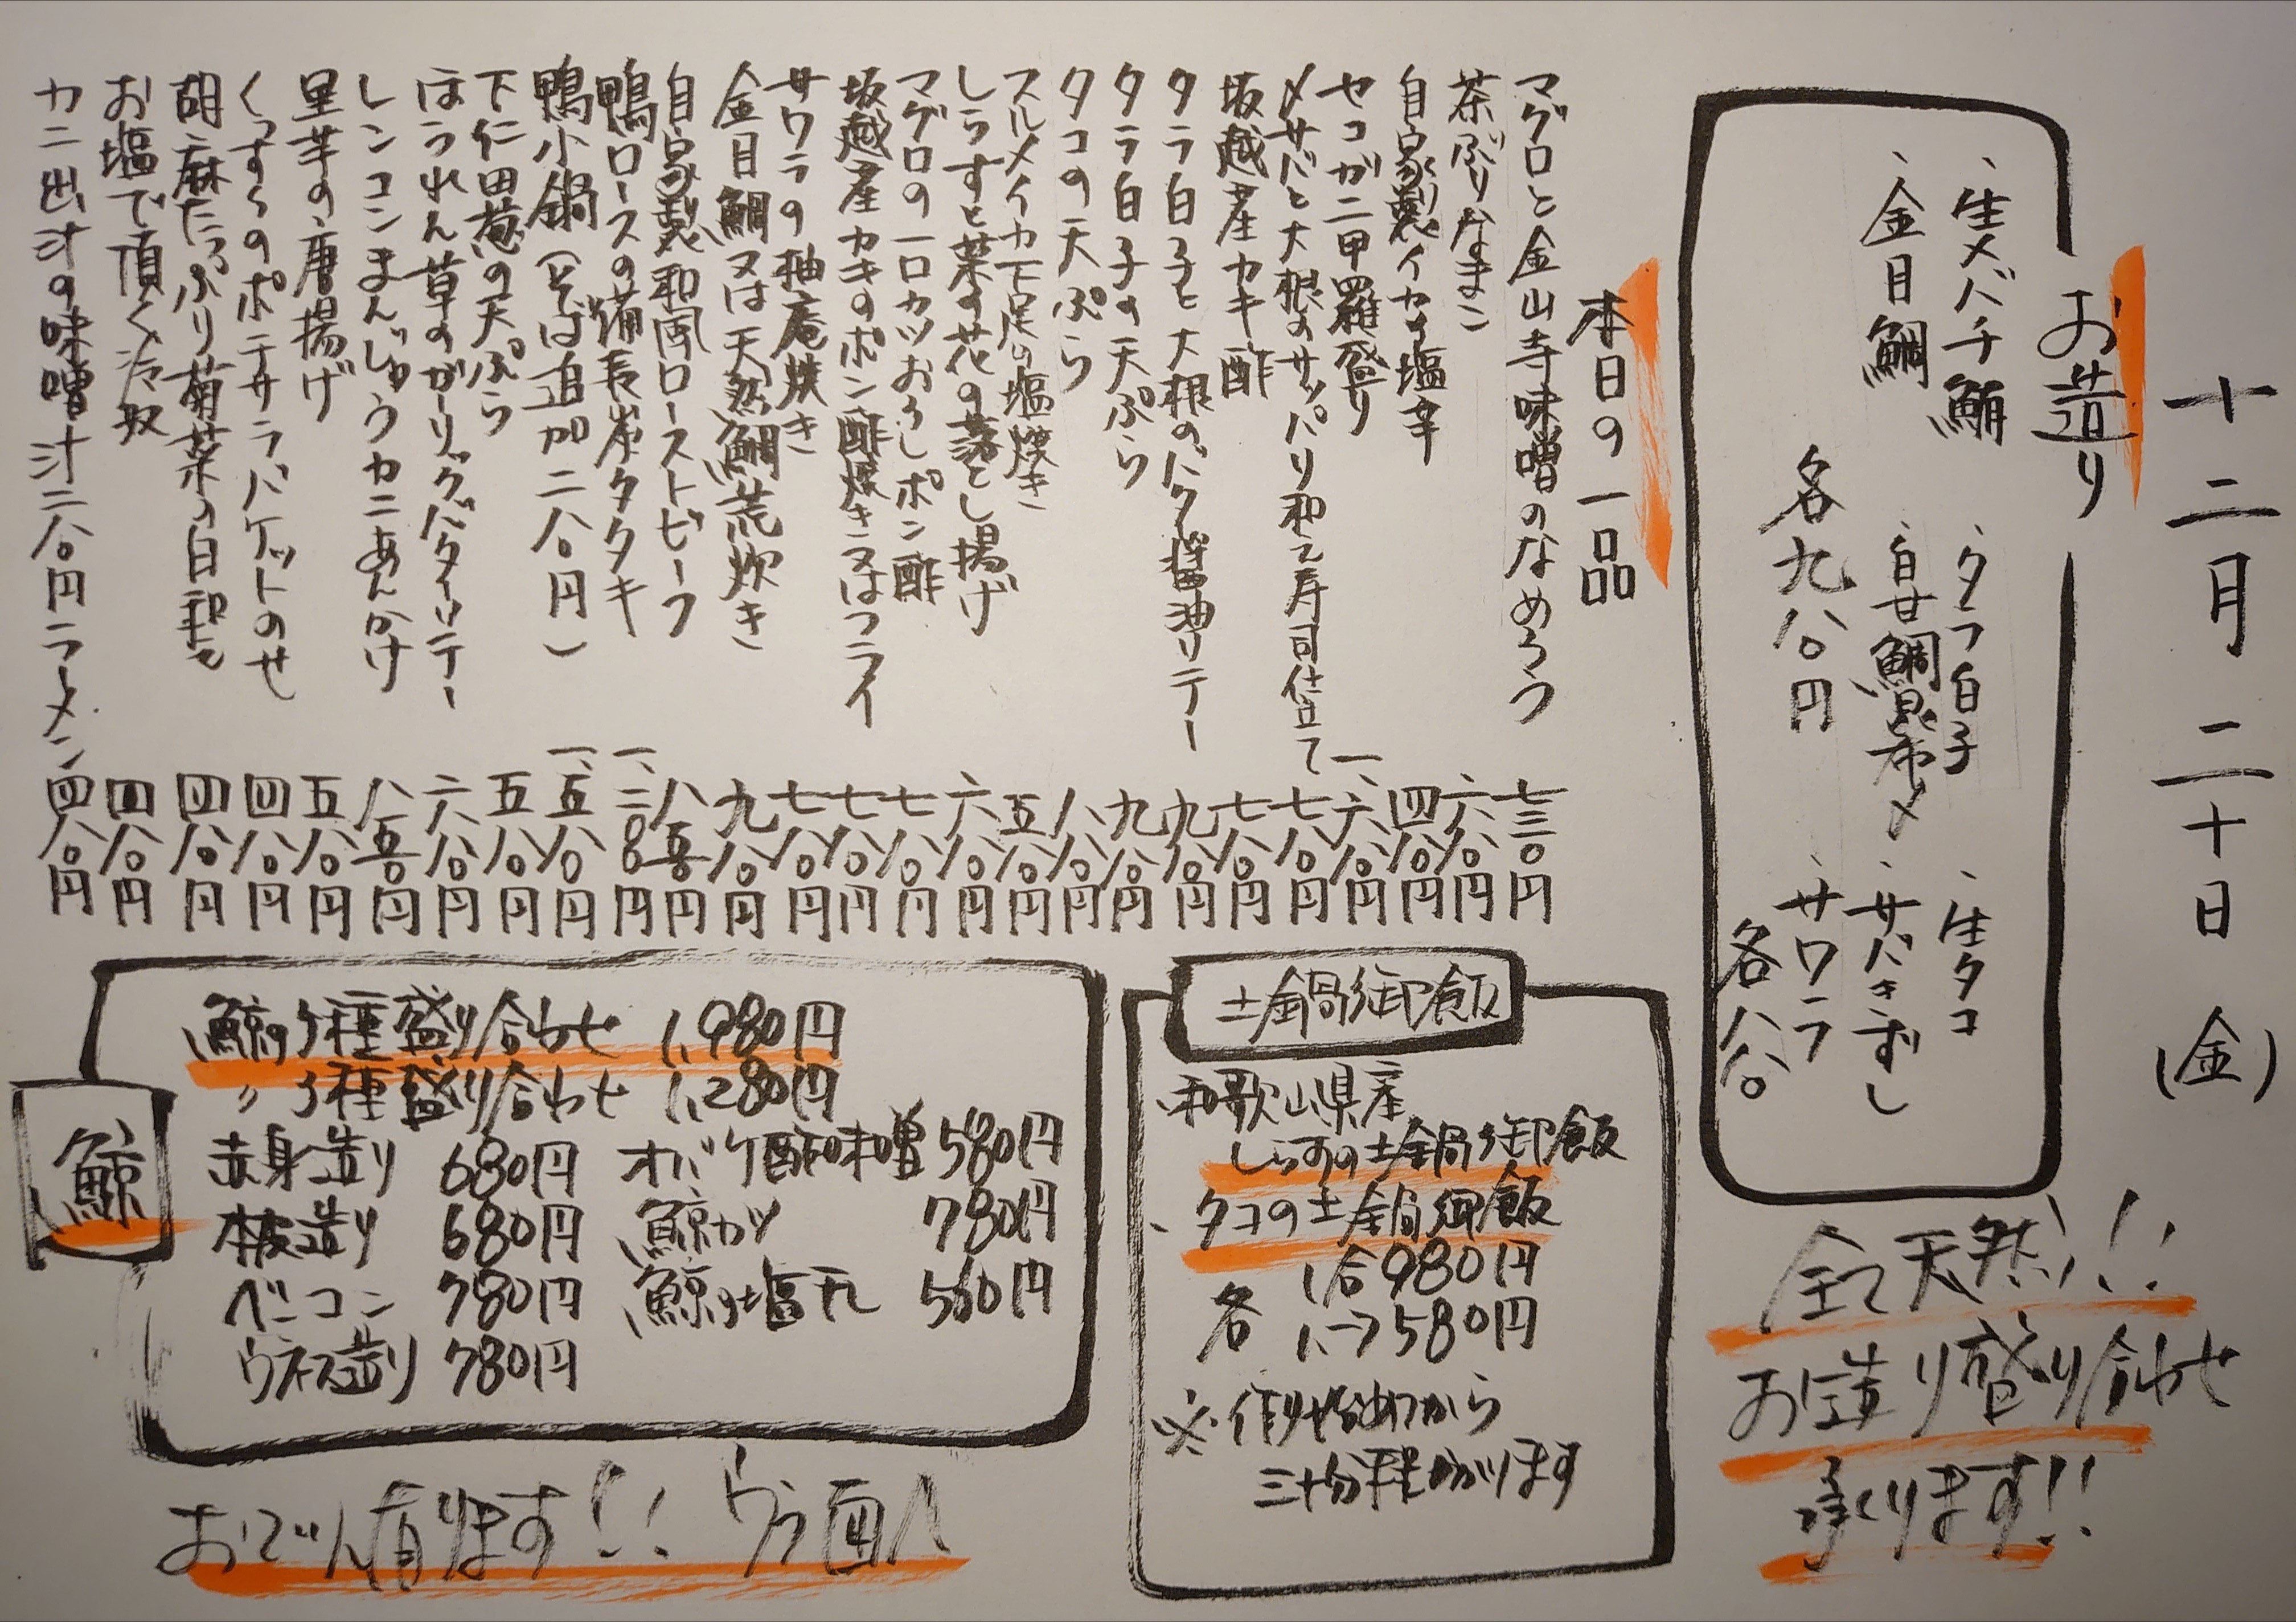 十二月二十日(金)
お造り
、生メバチ鮪
、タラ白子
、生タコ
、金目鯛
、白甘鯛昆布〆
、サバきずし
、サワラ
各九八〇円
各八八〇
全て天然!!
お造り盛り合わせ
承ります!!
本日の一品
マグロと金山寺味噌のなめろう 七三〇円
茶ぶりなまこ 六八〇円
自家製イカの塩辛 四八〇円
セコガニ甲羅盛り 一、六八〇円
〆サバと大根のサッパリ和え寿司仕立て 七八〇円
坂越産カキ酢 七八〇円
タラ白子と大根のバター醤油ソテー 九八〇円
タラ白子の天ぷら 九八〇円
タコの天ぷら 八八〇円
スルメイカ下足の塩焼き 五八〇円
しらすと菜の花の落とし揚げ 六八〇円
マグロの一口カツおろしポン酢 七八〇円
坂越産カキのポン酢焼き又はフライ 七八〇円
サワラの柚庵焼き 七八〇円
金目鯛又は天然鯛荒炊き 九八〇円
自家製和風ローストビーフ 八五〇円
鴨ロースの備長炭タタキ 一、二〇〇円
鴨小鍋(そば追加二八〇円) 一、五八〇円
下仁田葱の天ぷら 五八〇円
ほうれん草のガーリックバターソテー 六八〇円
レンコンまんじゅうカニあんかけ 八五〇円
里芋の唐揚げ 五八〇円
くっすくのポテサラバケットのせ 四八〇円
胡麻たっぷり菊菜の白和え 四八〇円
お塩で頂く冷奴 四八〇円
カニ出汁の味噌汁二八〇円ラーメン 四八〇円
土鍋御飯
、和歌山県産
しらすの土鍋御飯
、タコの土鍋御飯
各
1合980円
ハーフ580円
※作り始めてから
三十分程かかります
鯨
、鯨の5種盛り合わせ 1,980円
〃 3種盛り合わせ 1,280円
赤身造り 680円
オバケ酢味噌 580円
本皮造り 680円
、鯨カツ 780円
ベーコン 780円
、鯨の塩干し 560円
ウネス造り 780円
おでん有ります!! ウラ面へ